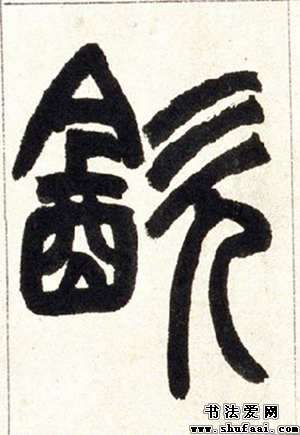 㱃
书法爱网
www.shufaai.com